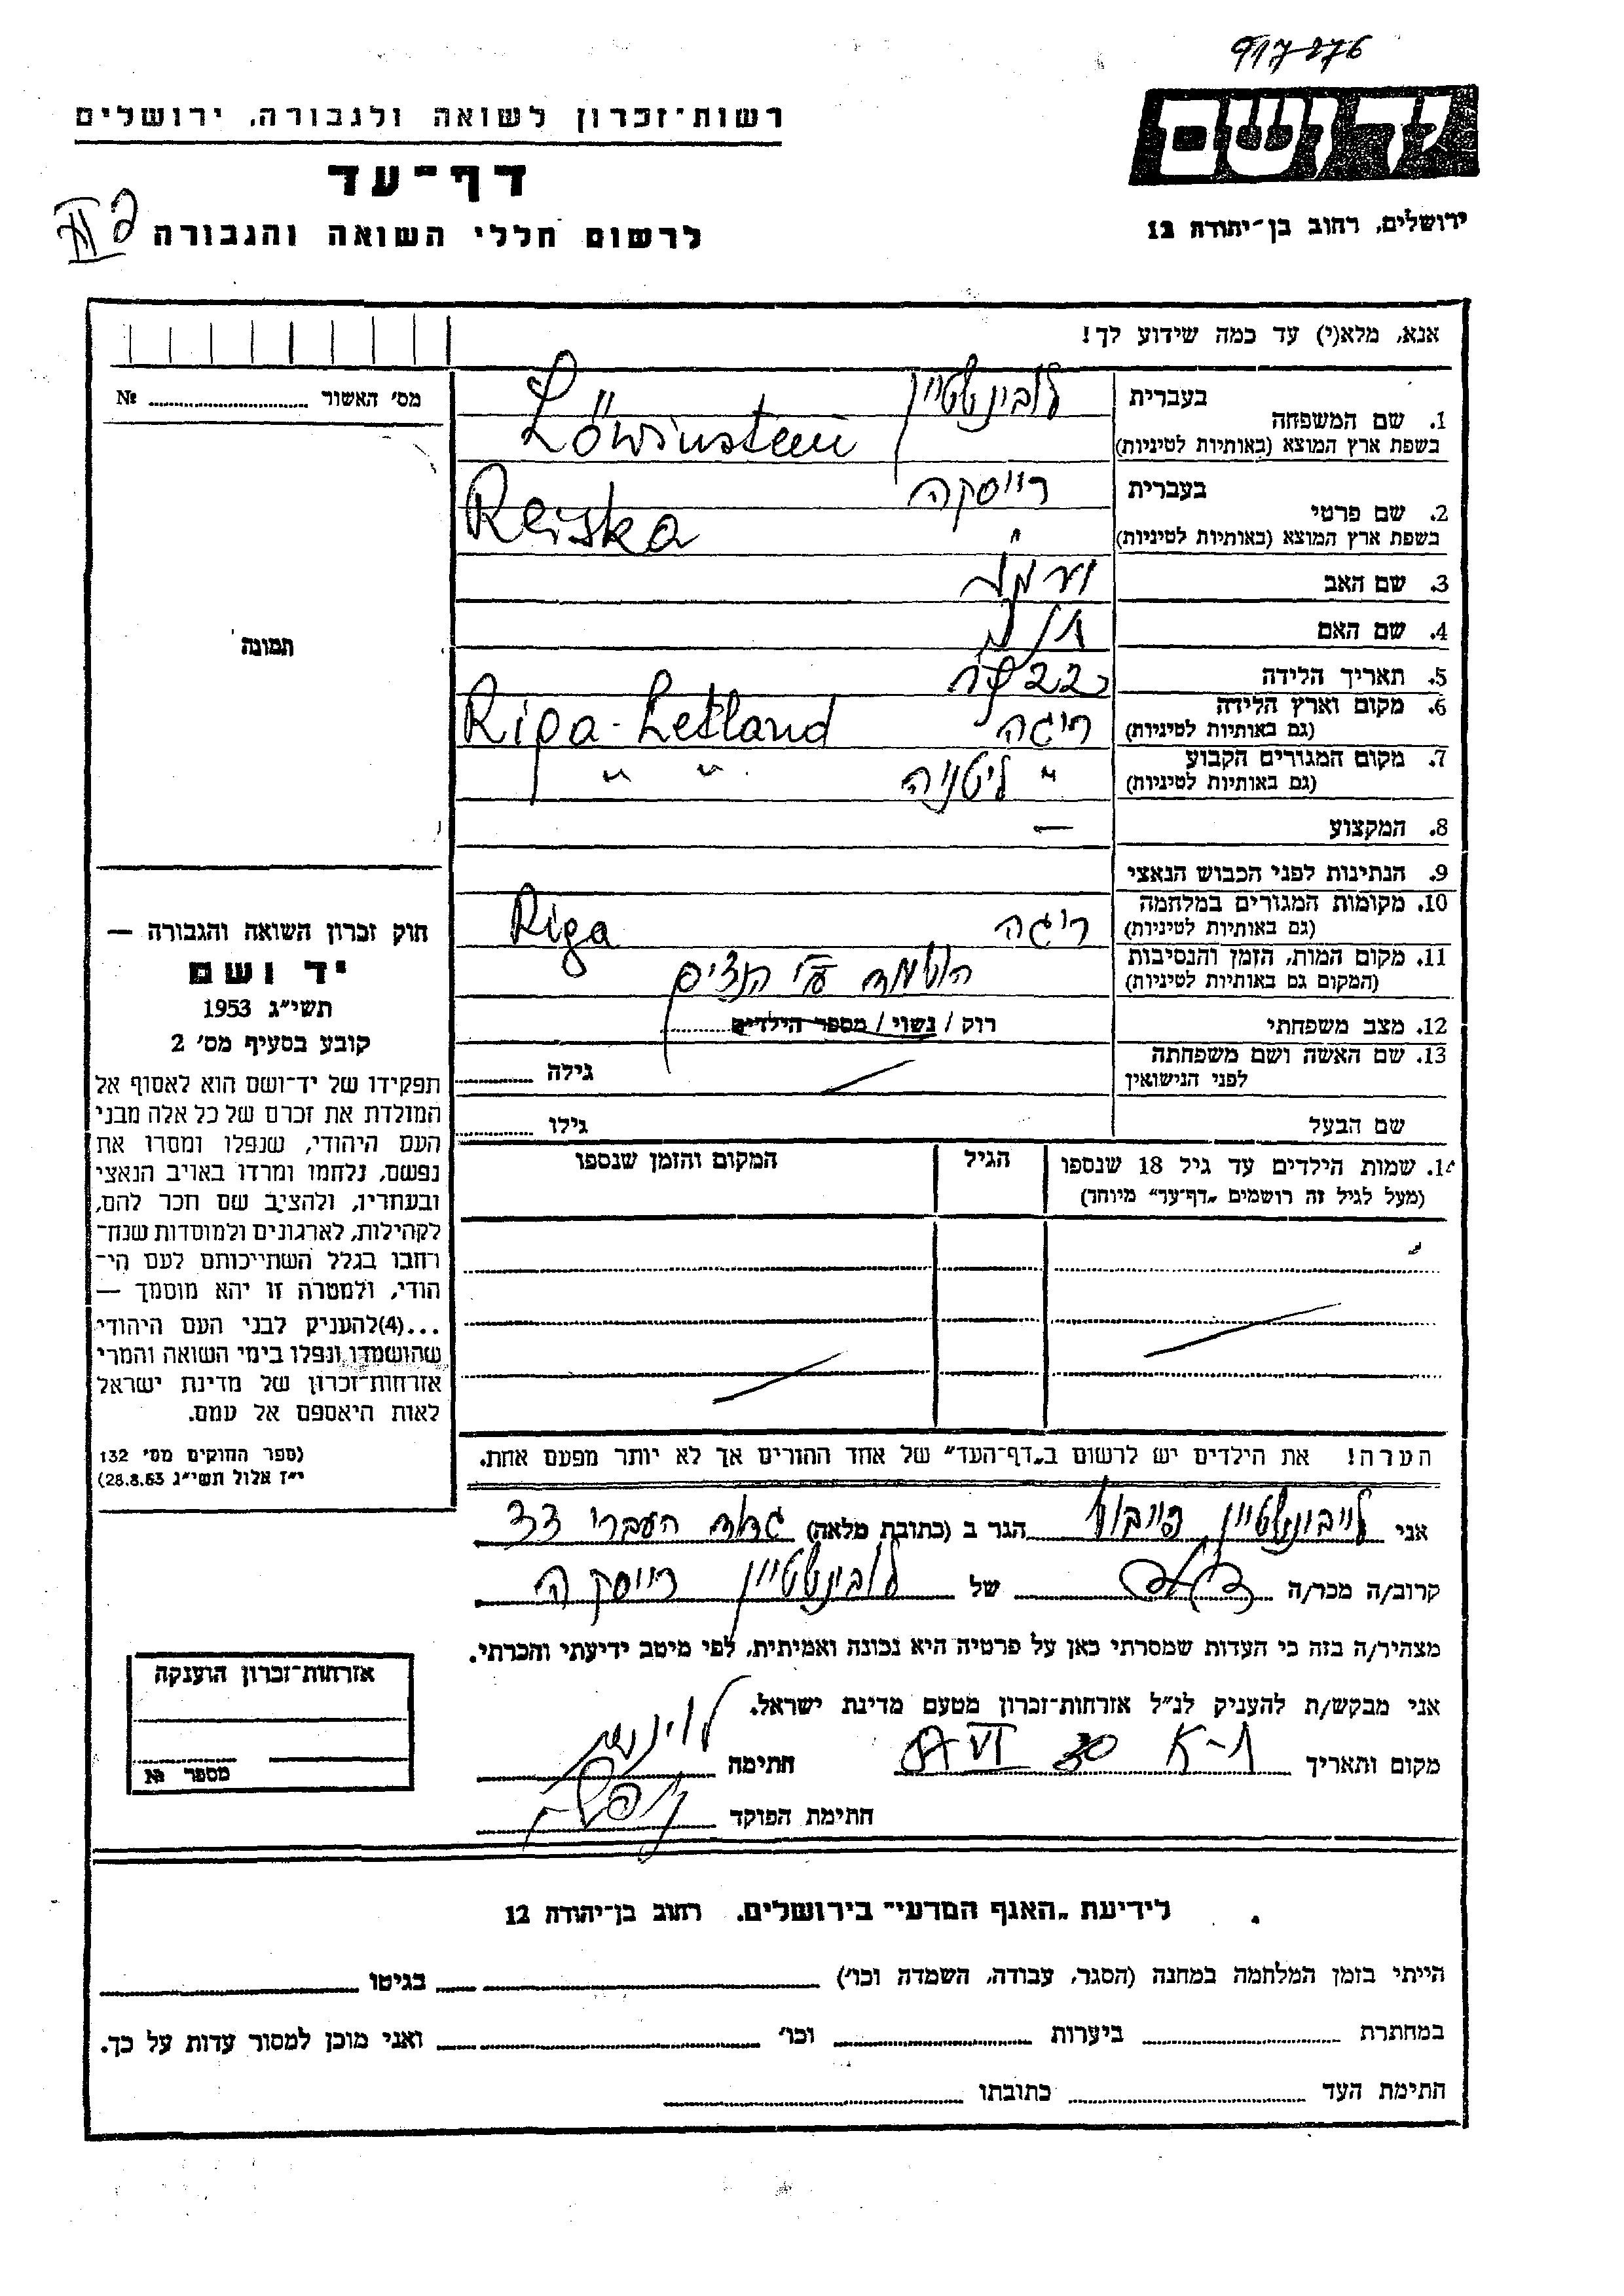 917276
רשות־זכרון לשואה ולגבורה, ירושלים
דף־עד
לרשום חללי השואה והגבורה
ידושם
ירושלים, רחוב בן־יהודה 12
אנא, מלא(י) עד כמה שידוע לך!
מס' האשור № 
1. שם המשפחה
בעברית לובינשטיין
בשפת ארץ המוצא (באותיות לטיניות) Löwinstein
2. שם פרטי
בעברית רייסקה
בשפת ארץ המוצא (באותיות לטיניות) Reiska
3. שם האב
4. שם האם
5. תאריך הלידה 22
6. מקום וארץ הלידה
(גם באותיות לטיניות) ריגה Riga - Letland
7. מקום המגורים הקבוע
(גם באותיות לטיניות) " ליטניה " "
8. המקצוע —
9. הנתינות לפני הכבוש הנאצי
10. מקומות המגורים במלחמה
(גם באותיות לטיניות) ריגה Riga
11. מקום המות, הזמן והנסיבות
(המקום גם באותיות לטיניות) הושמדה ע"י הנצים
12. מצב משפחתי רוק / נשוי / מספר הילדים
13. שם האשה ושם משפחתה
לפני הנישואין גילה
שם הבעל גילו
14. שמות הילדים עד גיל 18 שנספו
(מעל לגיל זה רושמים „דף־עד" מיוחד)
הגיל
המקום והזמן שנספו
הערה! את הילדים יש לרשום ב„דף־העד" של אחד ההורים אך לא יותר מפעם אחת.
תמונה
חוק זכרון השואה והגבורה —
יד ושם
תשי"ג 1953
קובע בסעיף מס' 2
תפקידו של יד־ושם הוא לאסוף אל
המולדת את זכרם של כל אלה מבני
העם היהודי, שנפלו ומסרו את
נפשם, נלחמו ומרדו באויב הנאצי
ובעוזריו, ולהציב שם וזכר להם,
לקהילות, לארגונים ולמוסדות שנח־
רחבו בגלל השתייכותם לעם הי־
הודי, ולמטרה זו יהא מוסמך —
...(4)להעניק לבני העם היהודי
שהושמדו ונפלו בימי השואה והמרי
אזרחות־זכרון של מדינת ישראל
לאות היאספם אל עמם.
(ספר החוקים מס' 132
י"ז אלול תשי"ג 28.8.53)
אני לייבונשטיין פייבוש הגר ב (כתובת מלאה) גדוד העברי 33
קרוב/ה מכר/ה של לובינשטיין רייסקה
מצהיר/ה בזה כי העדות שמסרתי כאן על פרטיה היא נכונה ואמיתית, לפי מיטב ידיעתי והכרתי.
אני מבקש/ת להעניק לנ"ל אזרחות־זכרון מטעם מדינת ישראל.
מקום ותאריך 30 VI חתימה
חתימת הפוקד
אזרחות־זכרון הוענקה
מספר №
לידיעת „האגף המדעי" בירושלים. רחוב בן־יהודה 12
הייתי בזמן המלחמה במחנה (הסגר, עבודה, השמדה וכו') בגיטו
במחתרת ביערות וכו' ואני מוכן למסור עדות על כך.
חתימת העד כתובתו